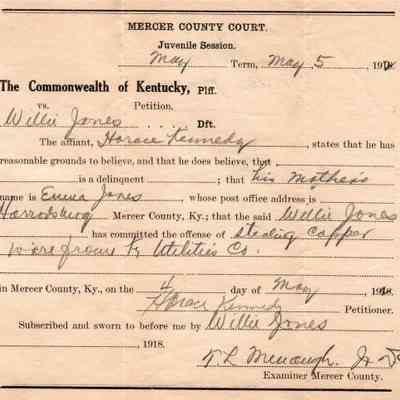 MERCER COUNTY COURT.
Juvenile Session.
May Term, May 5, 191
The Commonwealth of Kentucky, Plf.
vs. Petition.
Willie Jones . . . . Dft.
The affiant, Horace Kennedy, states that he has
reasonable grounds to believe, and that he does believe, that ,
is a delinquent ; that his Mother's
name is Emma Jones, whose post office address is
Harrodsburg Mercer County, Ky.; that the said Willie Jones
, has committed the offense of stealing copper
wire from Ky Utilities Co.
in Mercer County, Ky., on the 4 day of May 1918.
Horace Kennedy Petitioner.
Subscribed and sworn to before me by Willie Jones
, 1918.
Jr
Examiner Mercer County.